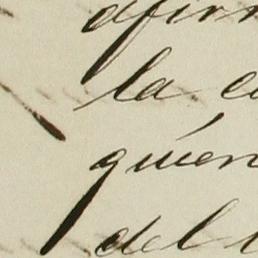 afirm
la c
quién
del